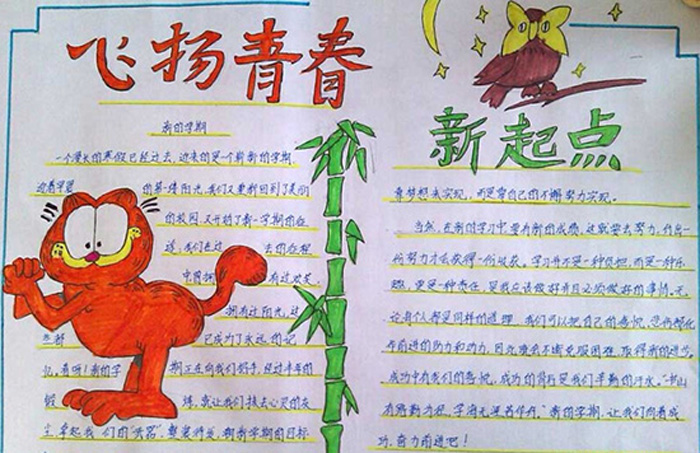 飞扬青春
新的学期
一个漫长的寒假已经过去,迎来的是一个崭新的学期,
迎着早晨的第一缕阳光,我们又重新回到了美丽
的校园,又开始了新一学期的征
途,我们在过去的征程
中曾拥有过欢笑
拥有过阳光,这
些都已成为了永远的记
忆。看呀!新的学期正在向我们招手,经过半年的
锻炼,就让我们抹去心灵的灰
尘,拿起我们的“武器”,整装待发,朝新学期的目标
新起点
靠梦想去实现,而是靠自己的不懈努力实现。
当然,在新的学习中要有新的成绩,这就要去努力,付出一
份努力才会获得一份收获。学习并不是一种负担,而是一种乐
趣,更是一种责任,是我应该做好并且必须做好的事情。无
论有人都是同样的道理,我们可以把自己的喜悦、悲伤都化
作前进的动力和动力,因此难会不断克服困难,取得新的进步,
成功中有我们的喜悦,成功的背后是我们辛勤的汗水。“书山
有路勤为径,学海无涯苦作舟。”新的学期,让我们向着成
功,奋力前进吧!